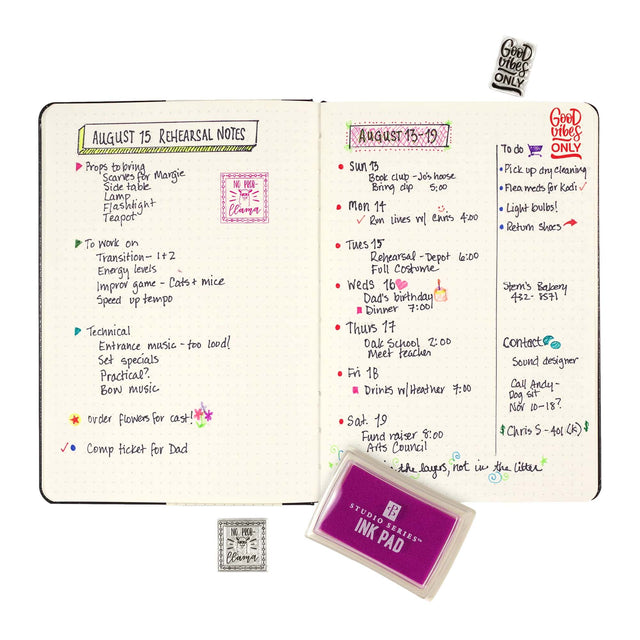 GOOD
vibes
ONLY
AUGUST 15 REHEARSAL NOTES
Props to bring
Scarves for Margie
Side table
Lamp
Flashlight
Teapot
NO PROB-
llama
To work on
Transition - 1 + 2
Energy levels
Improv game - Cats + mice
Speed up tempo
Technical
Entrance music - too loud!
Set specials
Practical?
Bow music
order flowers for cast!
Comp ticket for Dad
AUGUST 13-19
SUN 13
Book club - Jo's house
Bring dip 5:00
Mon 14
Run lines w/ Chris 4:00
Tues 15
Rehearsal - Depot 6:00
Full Costume
Weds 16
Dad's birthday
Dinner 7:00
Thurs 17
Oak School 2:00
Meet teacher
Fri 18
Drinks w/Heather 7:00
Sat. 19
Fund raiser 8:00
Arts Council
the layers, not in the litter
GOOD
vibes
ONLY
To do
Pick up dry cleaning
Flea meds for Kodi
Light bulbs!
Return shoes
Stern's Bakery
432-8571
Contact
Sound designer
Call Andy-
Dog sit
Nov 10-18?
$ Chris S - 401(k) $
NO PROB-
llama
STUDIO SERIES™
INK PAD